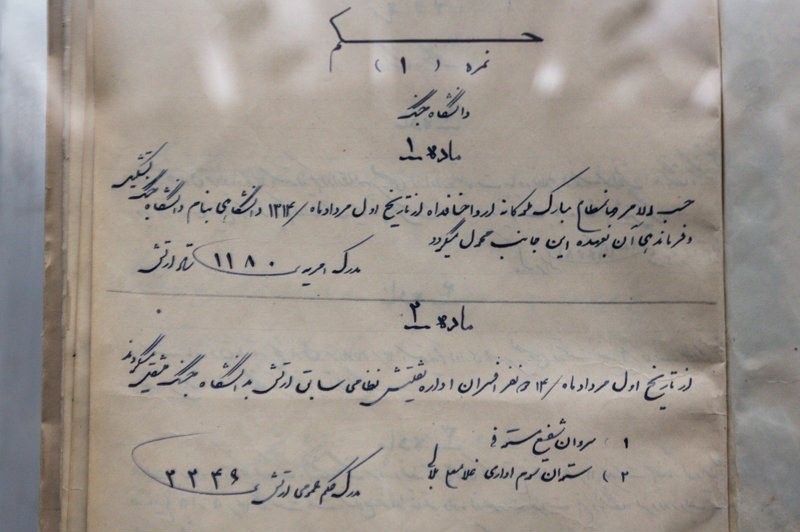 حکم
نمره (۱)
دانشگاه جنگ
ماده ۱
حسب الامر مبارک ملوکانه ارواحنافداه از تاریخ اول مردادماه /۱۳۱۴ دانشگاهی بنام دانشگاه جنگ تشکیل
و فرماندهی آن بعهده این جانب محول میگردد
مدرک امریه ۱۱۸۰ ارتش
ماده ۲
از تاریخ اول مردادماه /۱۴ نفر افسران اداره تفتیش نظامی سابق ارتش بدانشگاه جنگ منتقل میگردند
۱) سروان شفیع
۲) ستوان سوم اداری
مدرک حکم عمومی ارتش ۳۳۴۶